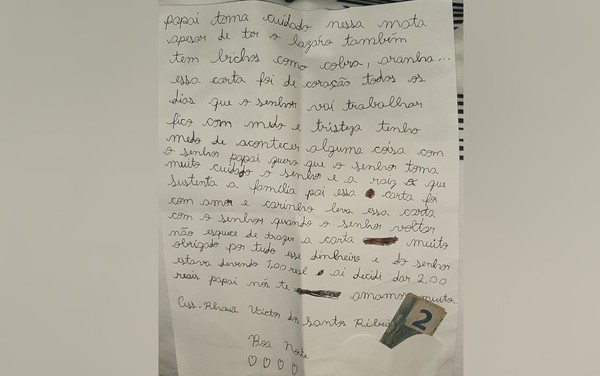 papai toma cuidado nessa mata
apesar de ter o lazáro também
tem brichos como cobra, aranha...
essa carta foi de coração todos os
dias que o senhor vai trabalhar
fico com medo e tristeza tenho
medo de acontecer alguma coisa com
o senhor papai quero que o senhor toma
muito cuidado o senhor e a raiz que
sustenta a família pai essa carta foi
com amor e carinho leva essa carta
com o senhor quando o senhor voltar
não esquece de trazer a carta muito
obrigado por tudo esse dinheiro e do senhor
estava devendo 1,00 real ai decidi dar 2,00
reais papai nós te amamos muito.
Ass. Rhauã Victor dos santos Ribeiro
Boa Noite
2